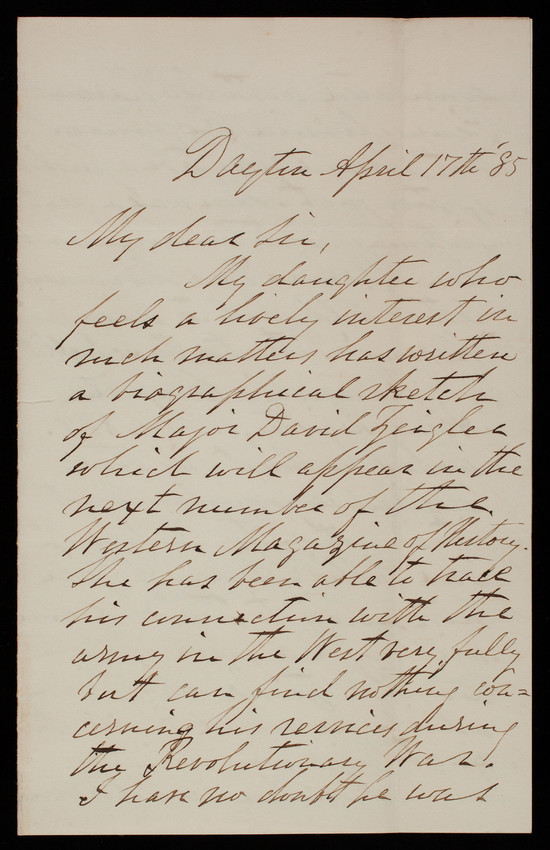 Dayton April 17th '85
My dear Sir,
My daughter who
feels a lively interest in
such matters has written
a biographical sketch
of Major David Zeigler
which will appear in the
next number of the
Western Magazine of History.
She has been able to trace
his connection with the
army in the West very fully
but can find nothing con=
cerning his services during
the Revolutionary War.
I have no doubt he was